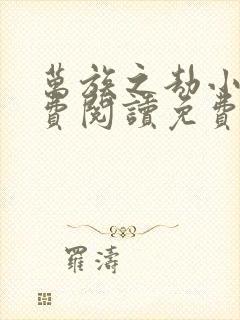 萬族之劫小
費閱讀免費
羅濤